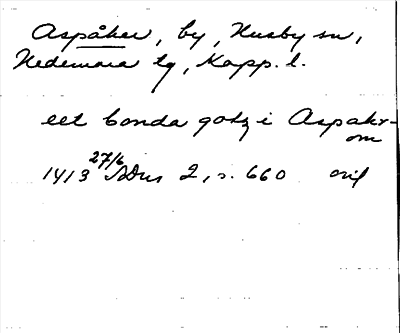 Aspåker, by, Husby sn,
Hedemora tg, Kopp. l.
eet bonda gotz i Aspakr-
om
1413 27/6 SDns 2, s. 660 oril